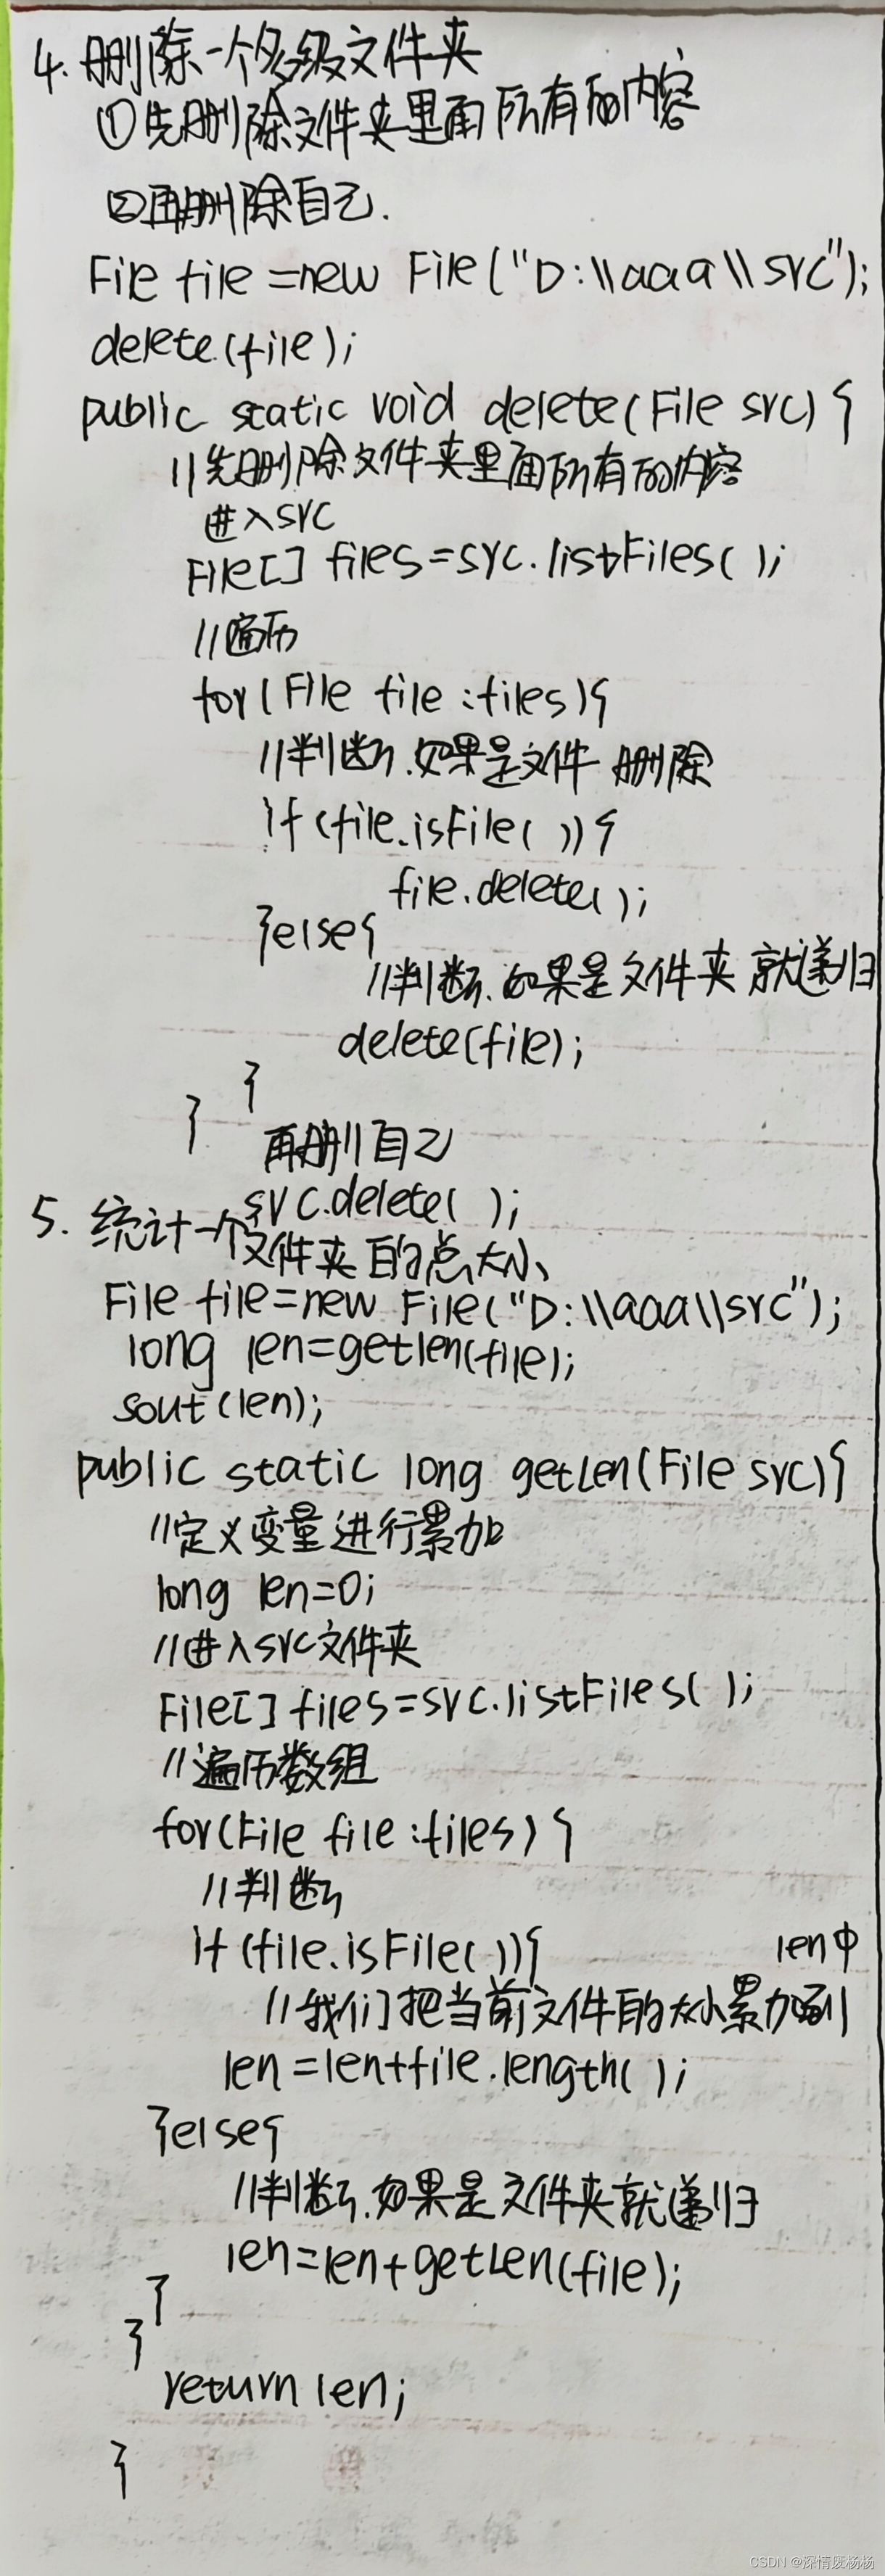 4. 删除一个多级文件夹
①先删除文件夹里面所有的内容
②再删除自己.
File file =new File("D:\\aaa\\src");
delete(file);
public static void delete(File src) {
//先删除文件夹里面所有的内容
进入src
File[] files=src.listFiles( );
//遍历
for(File file :files){
//判断.如果是文件 删除
if (file.isFile( )) {
file.delete( );
}else{
//判断.如果是文件夹 就递归
delete(file);
}
}
再删自己
src.delete( );
5. 统计一个文件夹的总大小
File file=new File("D:\\aaa\\src");
long len=getlen(file);
sout(len);
public static long getLen(File src){
//定义变量进行累加
long len=0;
//进入src文件夹
File[] files=src.listFiles( );
//遍历数组
for(File file :files) {
//判断
if (file.isFile( )){
//我们把当前文件的大小累加到len中
len=len+file.length( );
}else{
//判断.如果是文件夹就递归
len=len+getLen(file);
}
}
return len;
}
CSDN @深情废杨杨